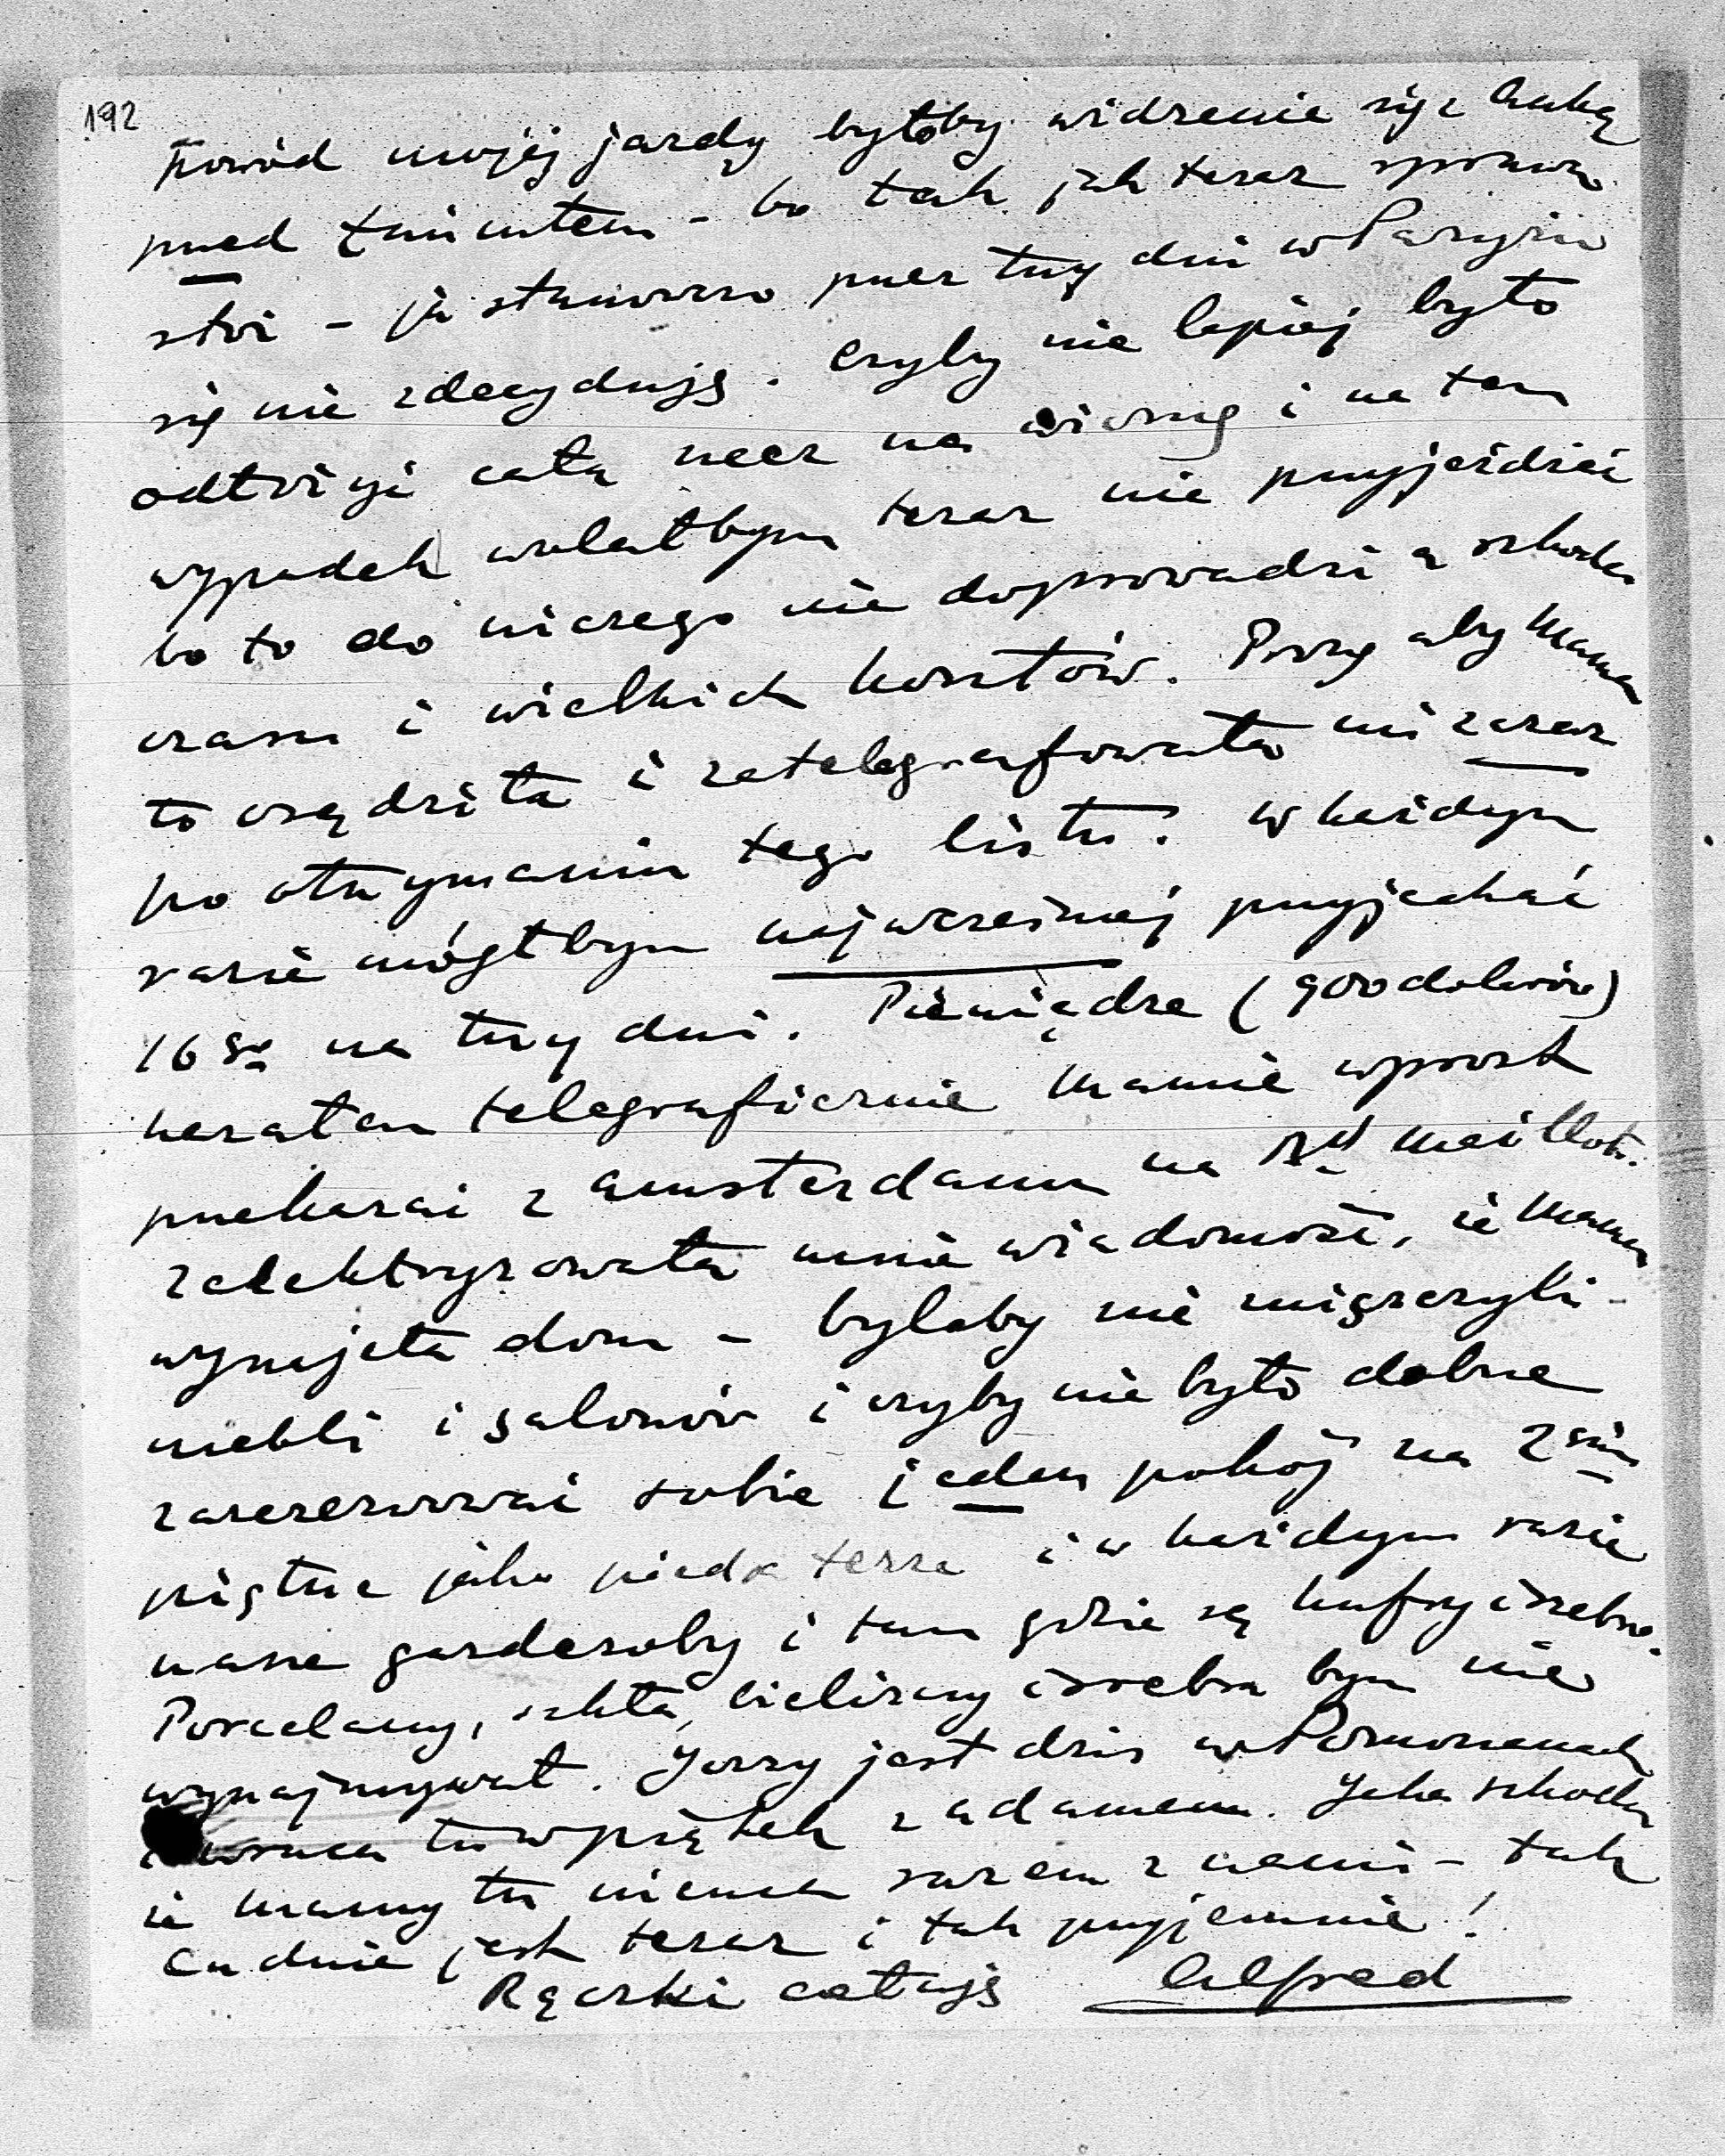 192
Powód mojej jazdy byłoby widzenie się z
przed – bo tak jak teraz sprawa
stoi – ja stanowczo przez trzy dni w Paryżu
się nie zdecyduję. Czyby nie lepiej było
odłożyć całą rzecz na wiosnę i na ten
wypadek wolałbym teraz nie przyjeździć
bo to do niczego nie doprowadzi a szkoda
czasu i wielkich kosztów. Proszę aby Mama
to osądziła i zatelegrafowała mi zaraz
po otrzymaniu tego listu. W każdym
razie mógłbym najwcześniej przyjechać
16go na trzy dni. Pieniądze (900 dolarów)
kazałem telegraficznie Mamie wprost
przekazać z Amsterdamu na Bd Maillot.
Zelektryzowała mnie wiadomość, że Mama
wynajęła dom – byleby nie zniszczyli
mebli i salonów i czyby nie było dobrze
zarezerwować sobie jeden pokój na 2gim
piętrze jako pied à terre i w każdym razie
nasze garderoby i tam gdzie są kufry i srebro.
Porcelany, szkła, bielizny i srebra bym nie
wynajmywał. Jerzy jest dziś w Pomorzanach
i wraca tu w piątek z Adamem. Jaka szkoda
że Mamy tu niema razem z nami – tak
cudnie jest teraz i tak przyjemnie!
Rączki całuję Alfred